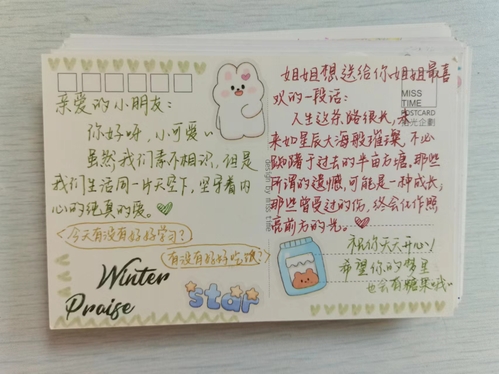 亲爱的小朋友：
你好呀，小可爱~
虽然我们素不相识，但是
我们生活同一片天空下，坚守着内
心的纯真的爱。
今天有没有好好学习？
有没有好好吃饭？
Winter
Praise
star
姐姐想送给你姐姐最喜
欢的一段话：
人生这条路很长，未
来如星辰大海般璀璨，不必
踟蹰于过去的半亩方塘，那些
所谓的遗憾，可能是一种成长，
那些曾受过的伤，终会化作照
亮前方的光。
MISS
TIME
POSTCARD
拾光企劃
祝你天天开心！
希望你的梦里
也会有糖果哦~